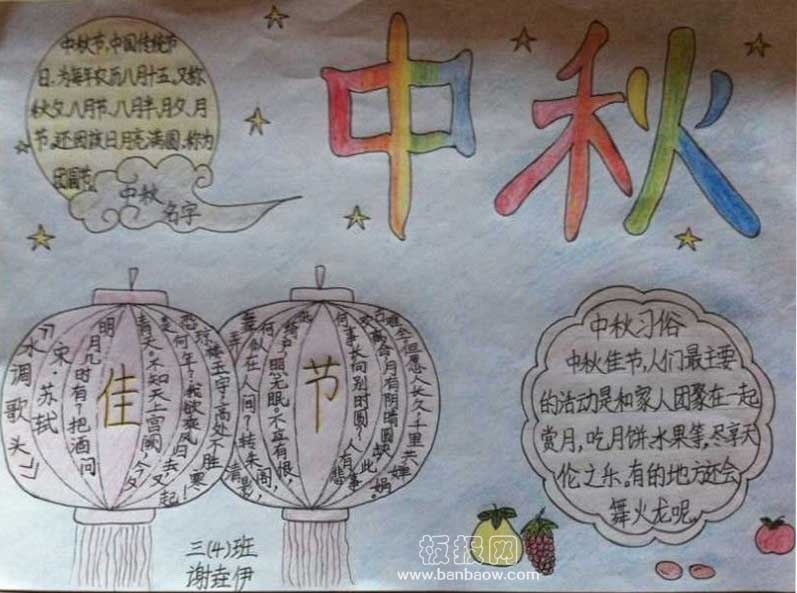 中秋节,中国传统节
日,为每年农历八月十五,又称
秋夕、八月节、八月半、月夕、月
节,还因该日月亮满圆,称为
团圆节。
中秋
名字
中秋
《水调歌头》
宋·苏轼
明月几时有?把酒问
佳
青天。不知天上宫阙,今夕
是何年?我欲乘风归去,又
恐琼楼玉宇,高处不胜寒,起
舞弄清影,
何似在人间?转朱阁,
绮户,照无眠。不应有恨,
节
何事长向别时圆?人有悲
合,月有阴晴圆缺,此事
全。但愿人长久,千里共婵娟。
中秋习俗
中秋佳节,人们最主要
的活动是和家人团聚在一起
赏月,吃月饼、水果等,尽享天
伦之乐。有的地方还会
舞火龙呢。
三(4)班
谢 伊
板报网
www.banbaow.com